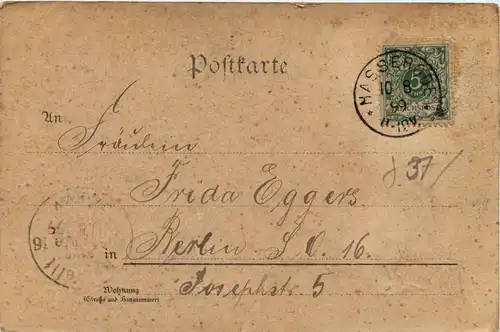 Postkarte
HASSER
5
10 8
99
An
Fräulein
37
Frida Eggers
in Berlin S. O. 16.
Wohnung
(Straße und Hausnummer)
Josephstr. 5